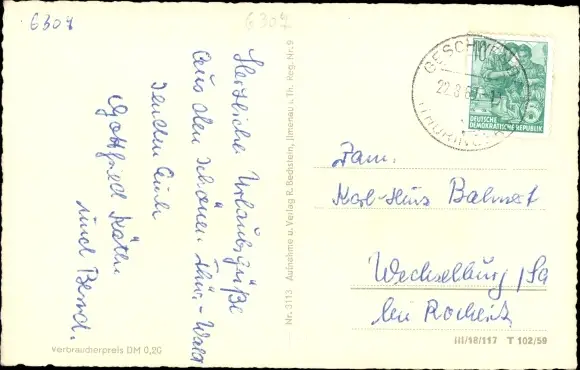 6307
6307
Herzliche Urlaubsgrüße
aus den schönen Thür.-Wald
senden Euch
Gottfried Käthe
und Bernd.
Verbraucherpreis DM 0,20
Nr. 3113 Aufnahme u. Verlag R. Bechstein, Ilmenau i. Th. Reg. Nr. 9
GESCHWENDA
22.8.
(THÜRING
10
DEUTSCHE
DEMOKRATISCHE REPUBLIK
Fam.
Karl-Heinz
Wechselburg/Sa
bei Rochlitz
III/18/117 T 102/59